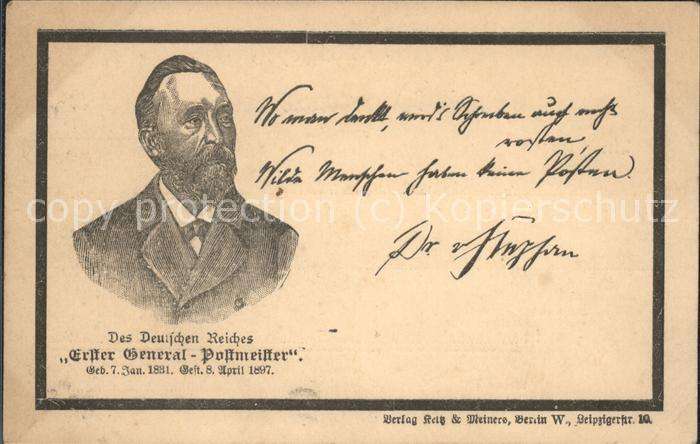 Wo man denkt, wird's Schreiben auch nicht
rosten
Wilde Menschen haben keine Posten.
Dr. v. Stephan
copy protection (c) Kopierschutz
Des Deutschen Reiches
„Erster General-Postmeister“.
Geb. 7. Jan. 1831. Gest. 8. April 1897.
Verlag & Meiners, Berlin W., Leipzigerstr. 10.